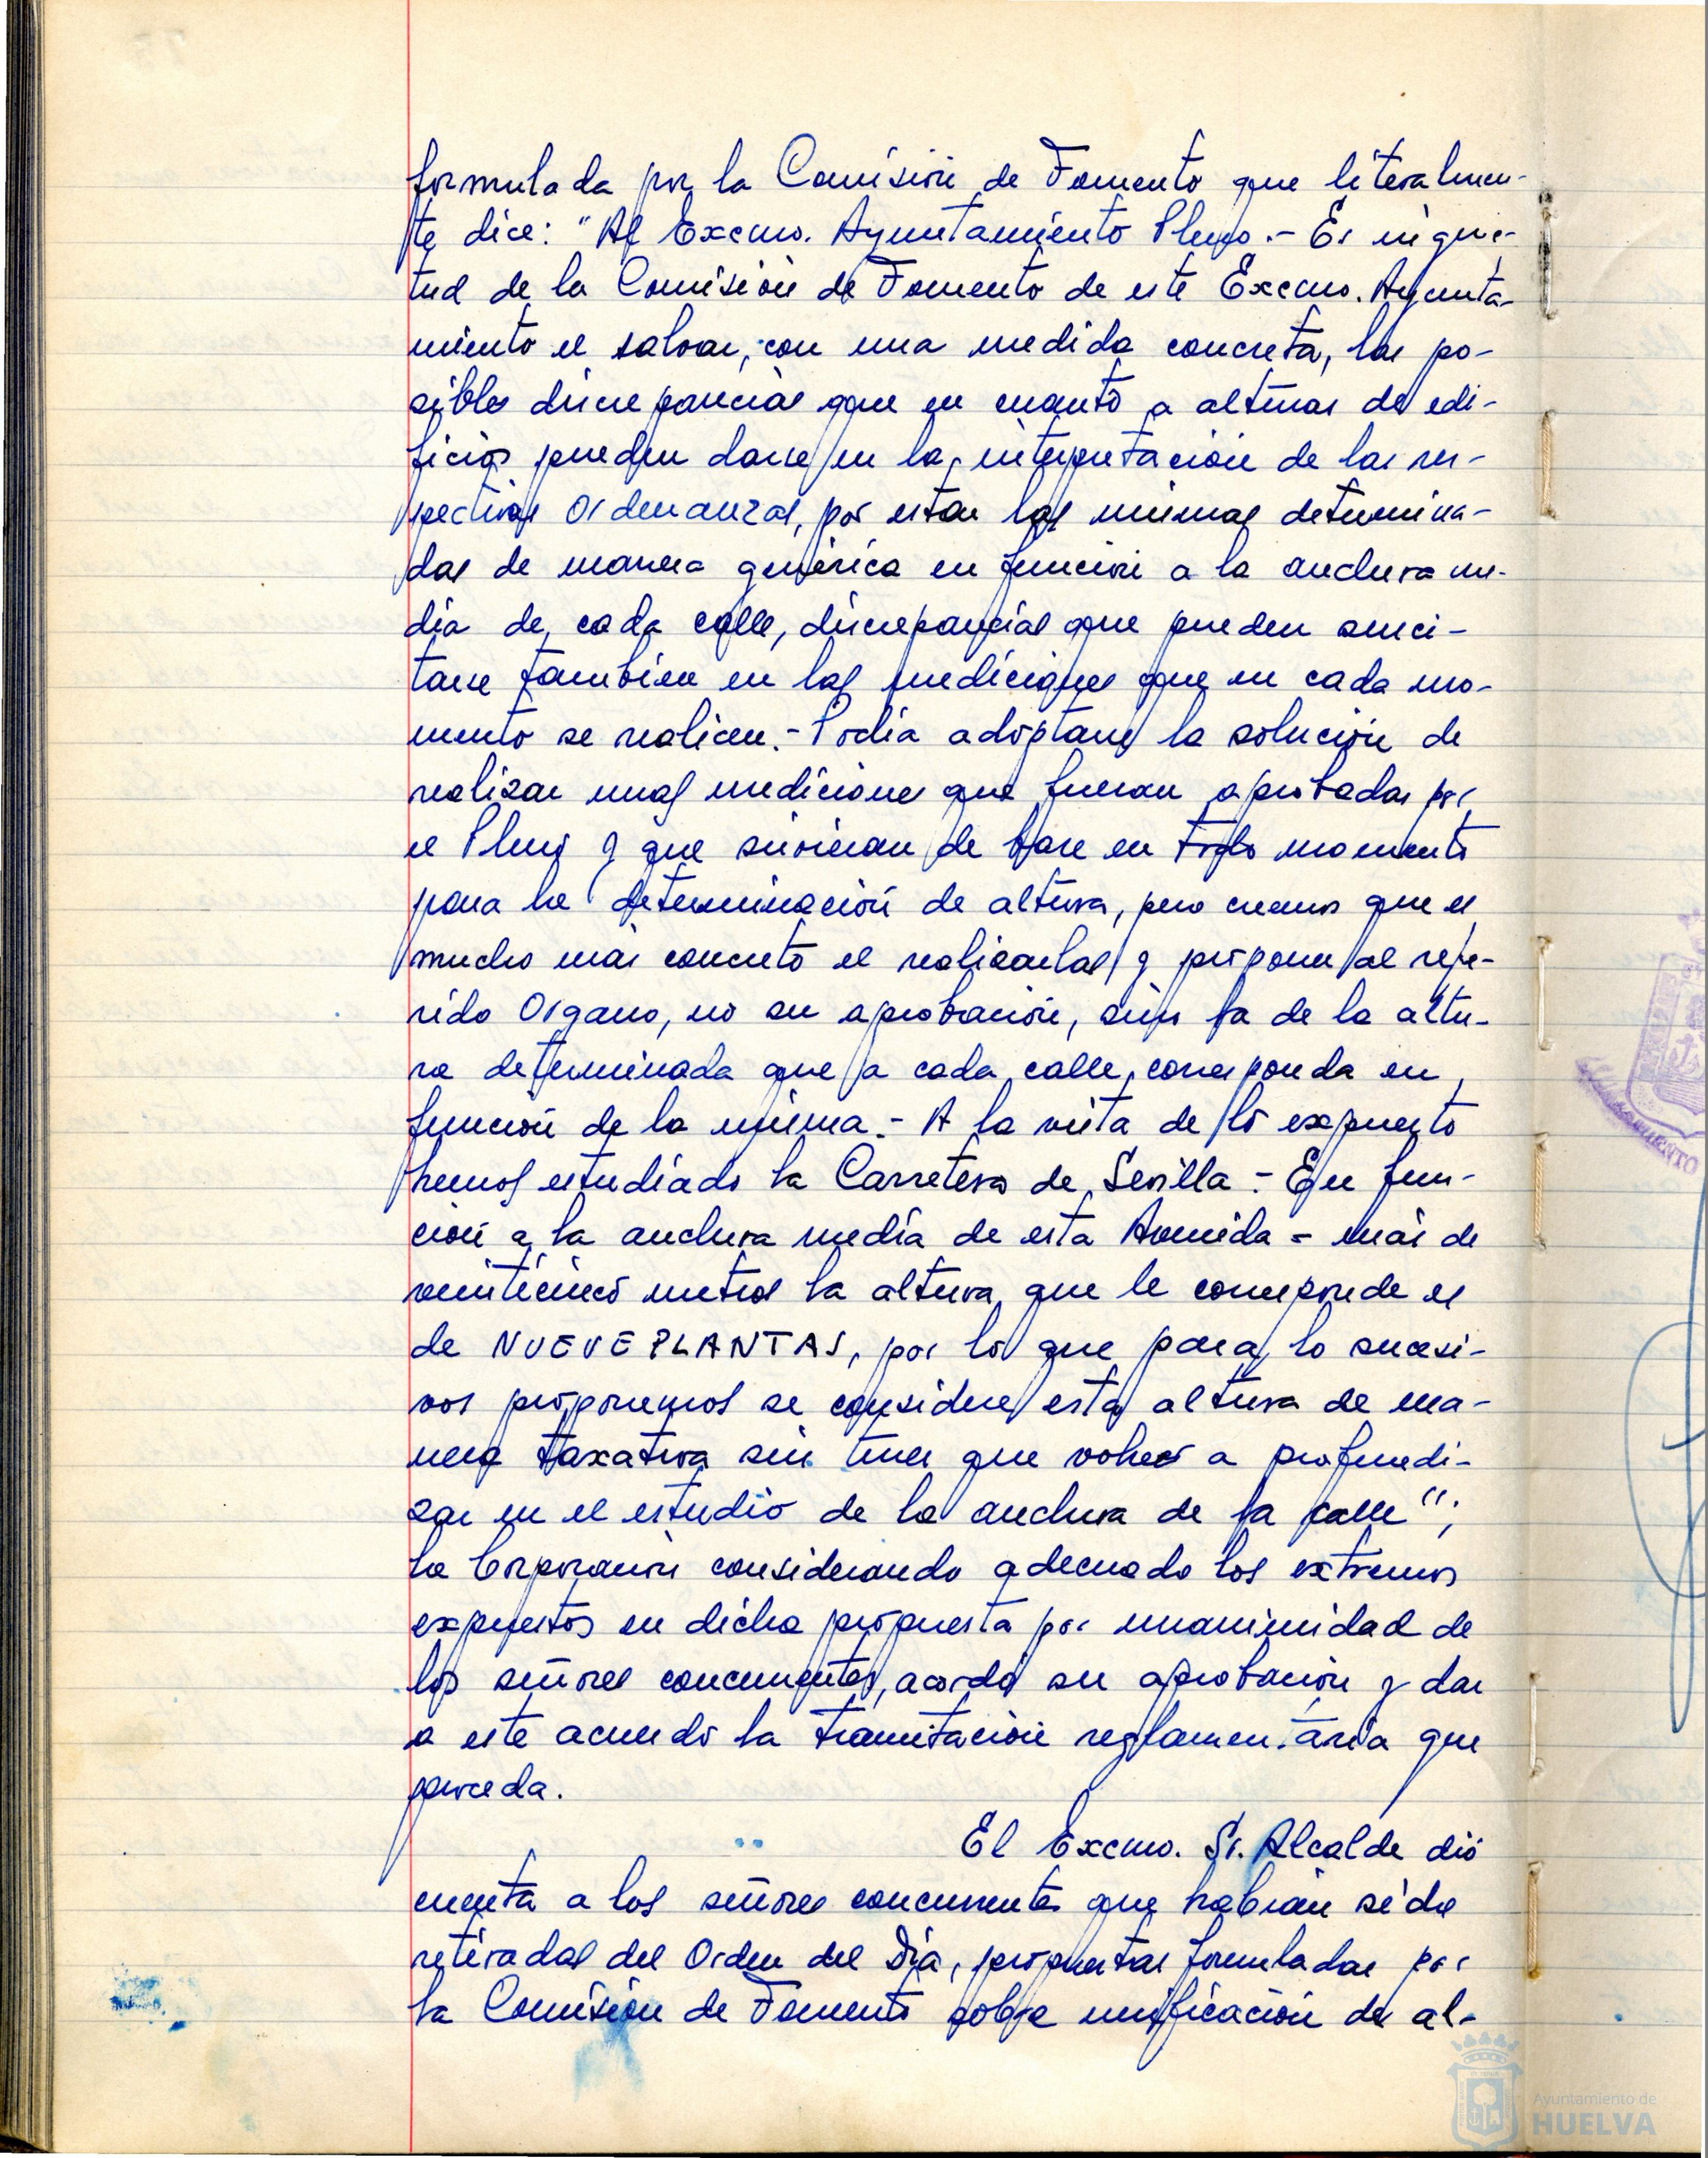 formulada por la Comisión de Fomento que literalmen-
te dice: "Al Excmo. Ayuntamiento Pleno.- Es inquie-
tud de la Comisión de Fomento de este Excmo. Ayunta-
miento el salvar, con una medida concreta, las po-
sibles discrepancias que en cuanto a alturas de edi-
ficios pueden darse en la interpretación de las res-
pectivas Ordenanzas, por estar las mismas determina-
das de manera genérica en función a la anchura me-
dia de cada calle, discrepancias que pueden susci-
tarse también en las mediciones que en cada mo-
mento se realicen.- Podía adoptarse la solución de
realizar unas mediciones que fueran aprobadas por
el Pleno y que sirvieran de base en todo momento
para la determinación de altura, pero creemos que es
mucho más concreto el realizarlas y proponer al refe-
rido Organo, no su aprobación, sino la de la altu-
ra determinada que a cada calle corresponda en
función de la misma.- A la vista de lo expuesto
hemos estudiado la Carretera de Sevilla.- En fun-
ción a la anchura media de esta Avenida - más de
veinticinco metros la altura que le corresponde es
de NUEVE PLANTAS, por lo que para lo sucesi-
vos proponemos se considere esta altura de ma-
nera taxativa sin tener que volver a profundi-
zar en el estudio de la anchura de la calle";
la Corporación considerando adecuado los extremos
expuestos en dicha propuesta por unanimidad de
los señores concurrentes, acordó su aprobación y dar
a este acuerdo la tramitación reglamentaria que
proceda.
El Excmo. Sr. Alcalde dió
cuenta a los señores concurrentes que habían sido
retiradas del Orden del Día, propuestas formuladas por
la Comisión de Fomento sobre unificación de al-
Ayuntamiento de
HUELVA